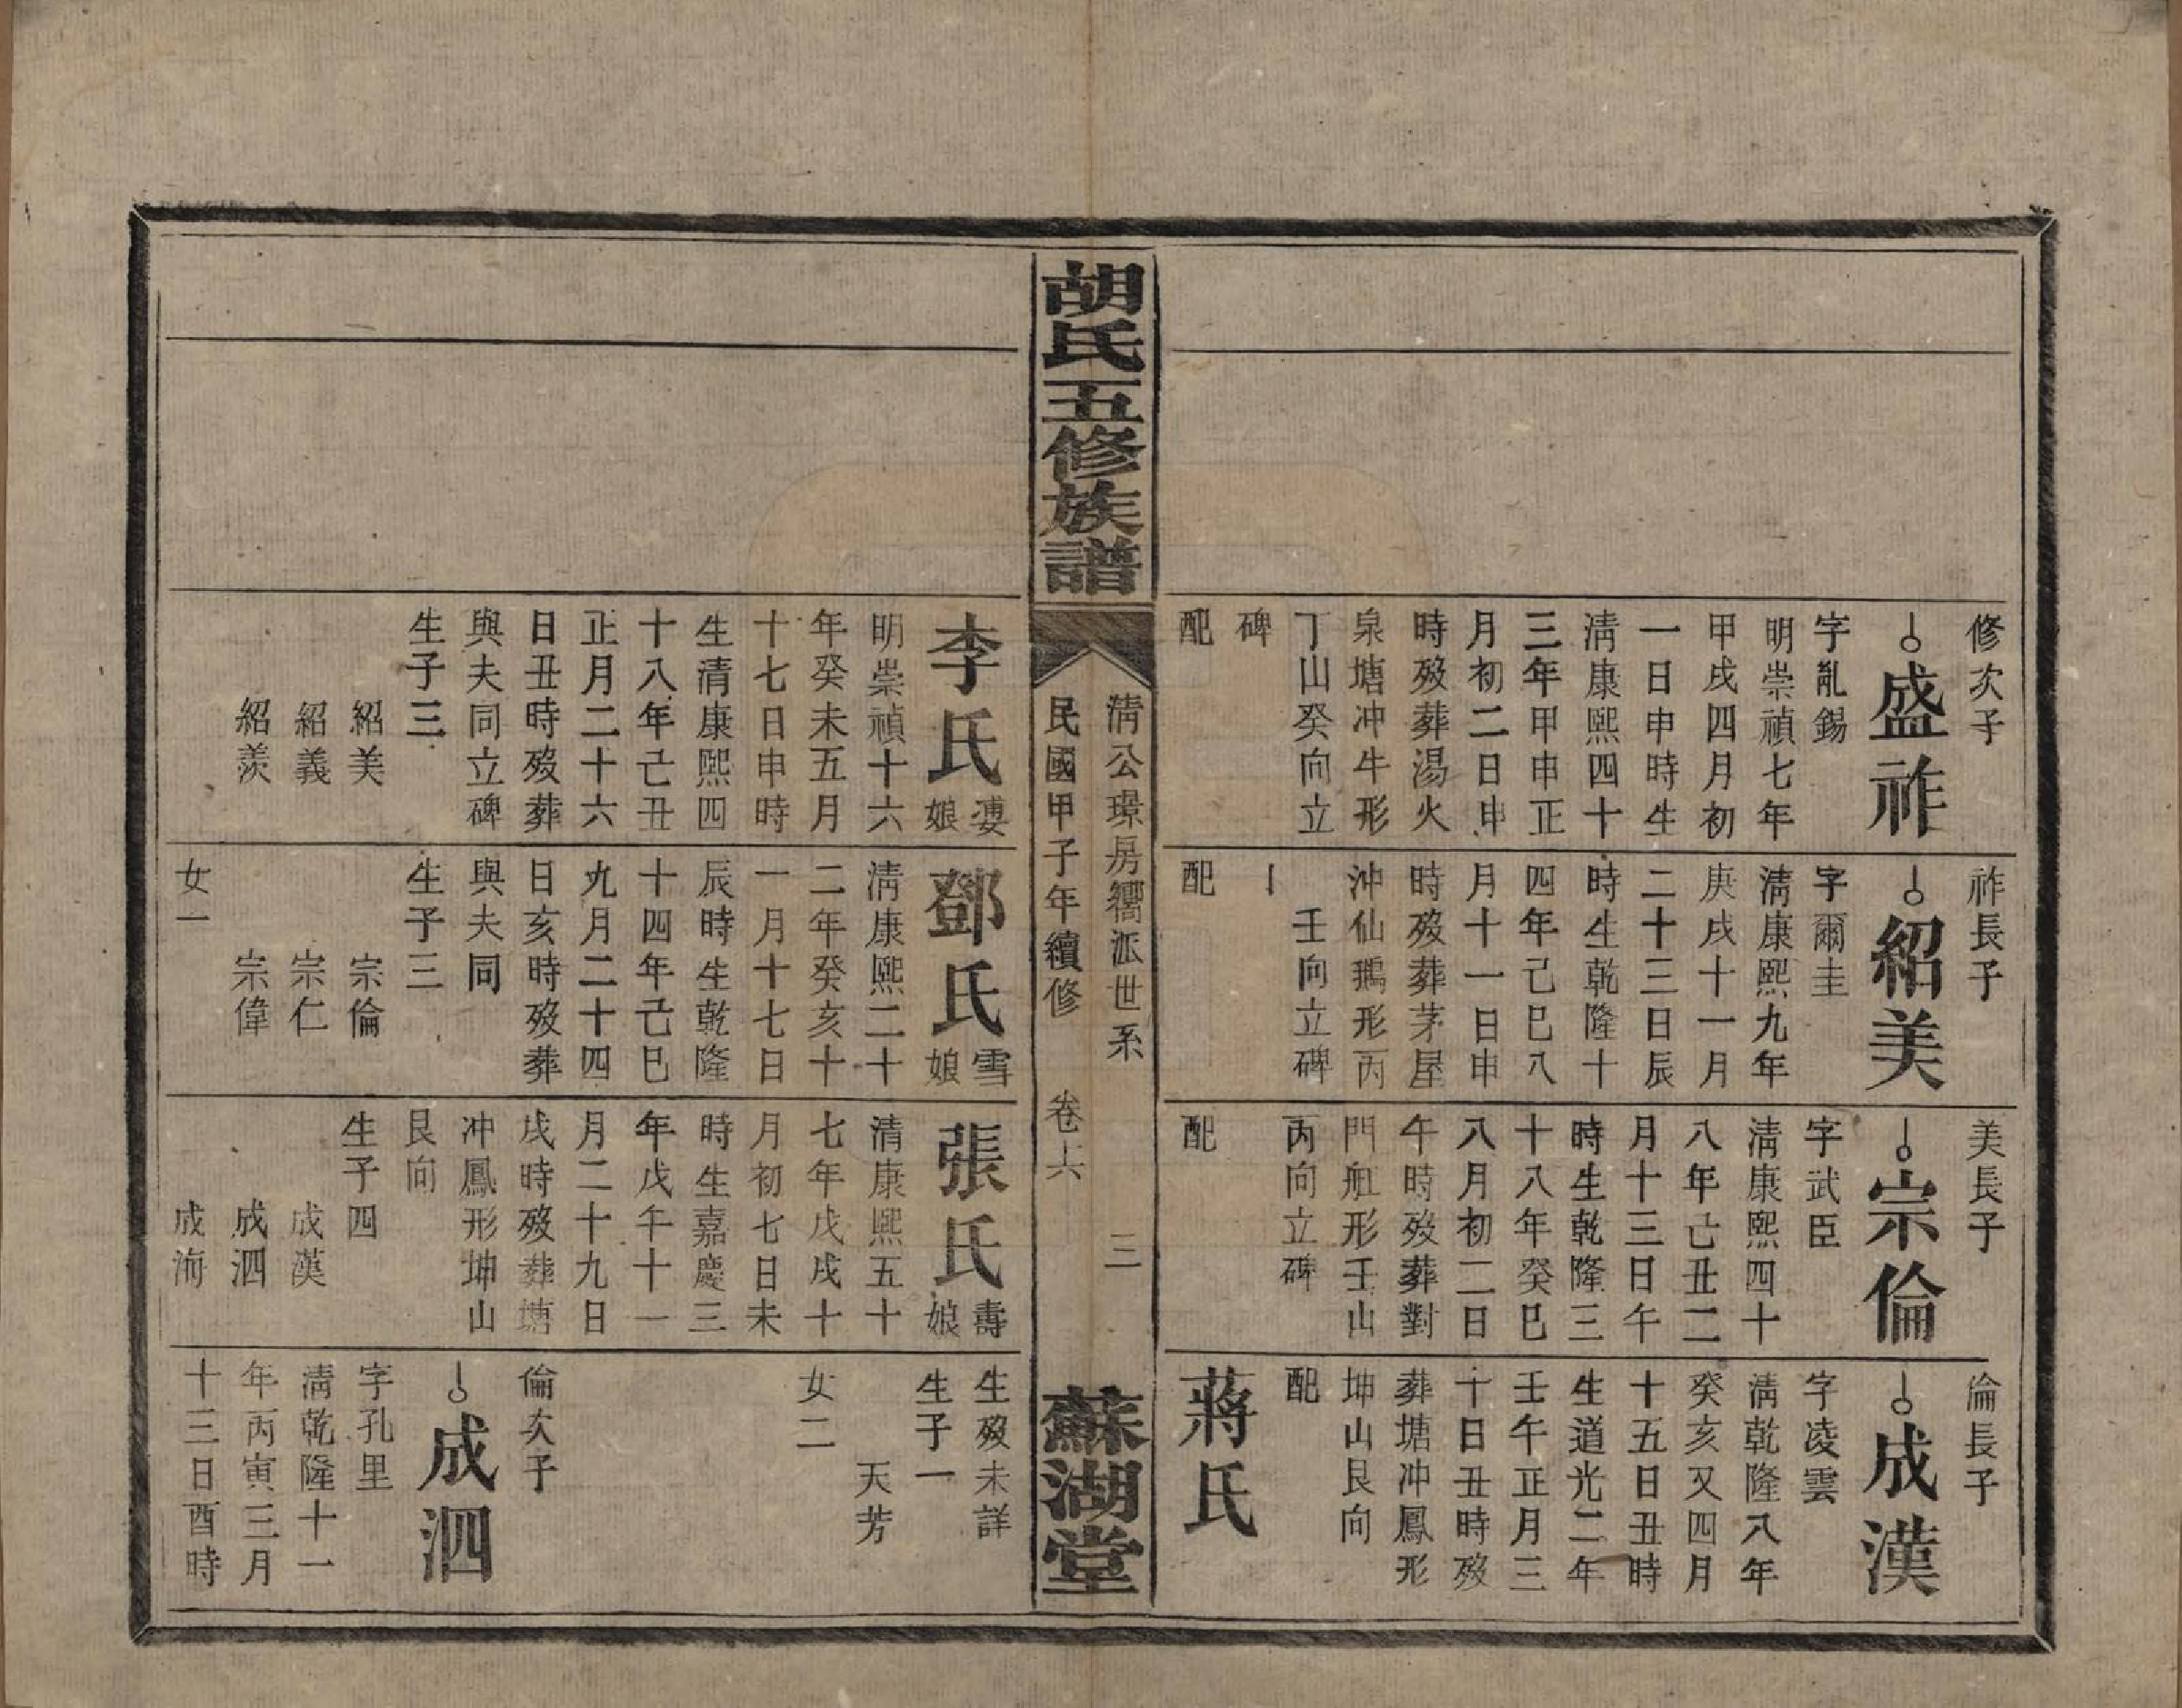 修次子
盛祚
字亂錫
明崇禎七年
甲戌四月初
一日申時生
淸康熙四十
三年甲申正
月初二日申
時歿葬湯火
泉塘冲牛形
丁山癸向立
碑
配
李氏婆娘
明崇禎十六
年癸未五月
十七日申時
生清康熙四
十八年己丑
正月二十六
日丑時歿葬
與夫同立碑
生子三
紹美
紹義
紹羨
祚長子
紹美
字爾圭
淸康熙九年
庚戌十一月
二十三日辰
時生乾隆十
四年己巳八
月十一日申
時歿葬茅屋
沖仙鵝形丙
壬向立碑
配
鄧氏雪娘
淸康熙二十
二年癸亥十
一月十七日
辰時生乾隆
十四年己巳
九月二十四
日亥時歿葬
與夫同
生子三
宗倫
宗仁
宗偉
女一
美長子
宗倫
字武臣
淸康熙四十
八年己丑二
月十三日午
時生乾隆三
十八年癸巳
八月初二日
午時歿葬對
門船形壬山
丙向立碑
配
張氏壽娘
清康熙五十
七年戊戌十
月初七日未
時生嘉慶三
年戊午十一
月二十九日
戌時歿葬塘
冲鳳形坤山
艮向
生子四
成漢
成泗
成海
倫長子
成漢
字凌雲
淸乾隆八年
癸亥又四月
十五日丑時
生道光二年
壬午正月三
十日丑時歿
葬塘冲鳳形
坤山艮向
配
蔣氏
生歿未詳
生子一
天芳
女二
倫次子
成泗
字孔里
淸乾隆十一
年丙寅三月
十三日酉時
胡氏五修族譜
淸公璟房衢派世系 三
民國甲子年續修 卷六
蘇湖堂